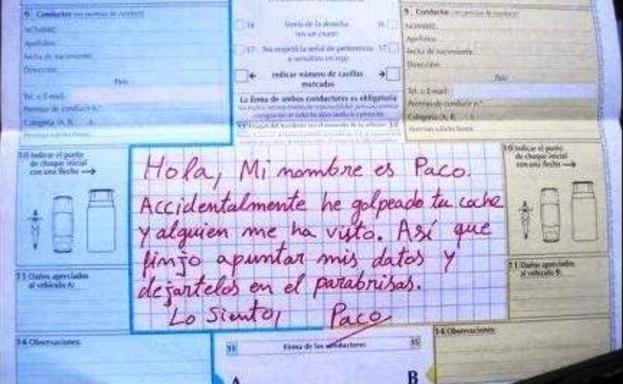 9 Conductor
NOMBRE:
Apellidos:
Fecha de nacimiento:
Dirección:
País:
Tel. o E-mail:
Permiso de conducir n.º
Categoría (A, B, )
16 Venía de la derecha 16
(en un cruce)
17 No respetó la señal de preferencia 17
o semáforo en rojo
← indicar número de casillas →
marcadas
La firma de ambos conductores es obligatoria
9 Conductor
NOMBRE:
Apellidos:
Fecha de nacimiento:
Dirección:
País:
Tel. o E-mail:
Permiso de conducir n.º
Categoría (A, B, )
10 Indicar el punto
de choque inicial
con una flecha →
Hola, Mi nombre es Paco.
Accidentalmente he golpeado tu coche
y alguien me ha visto. Así que
finjo apuntar mis datos y
dejartelos en el parabrisas.
Lo siento, Paco
10 Indicar el punto
de choque inicial
con una flecha →
11 Daños apreciados
al vehículo A:
11 Daños apreciados
al vehículo B:
14 Observaciones:
15 Firma de los conductores 15
A B
14 Observaciones: